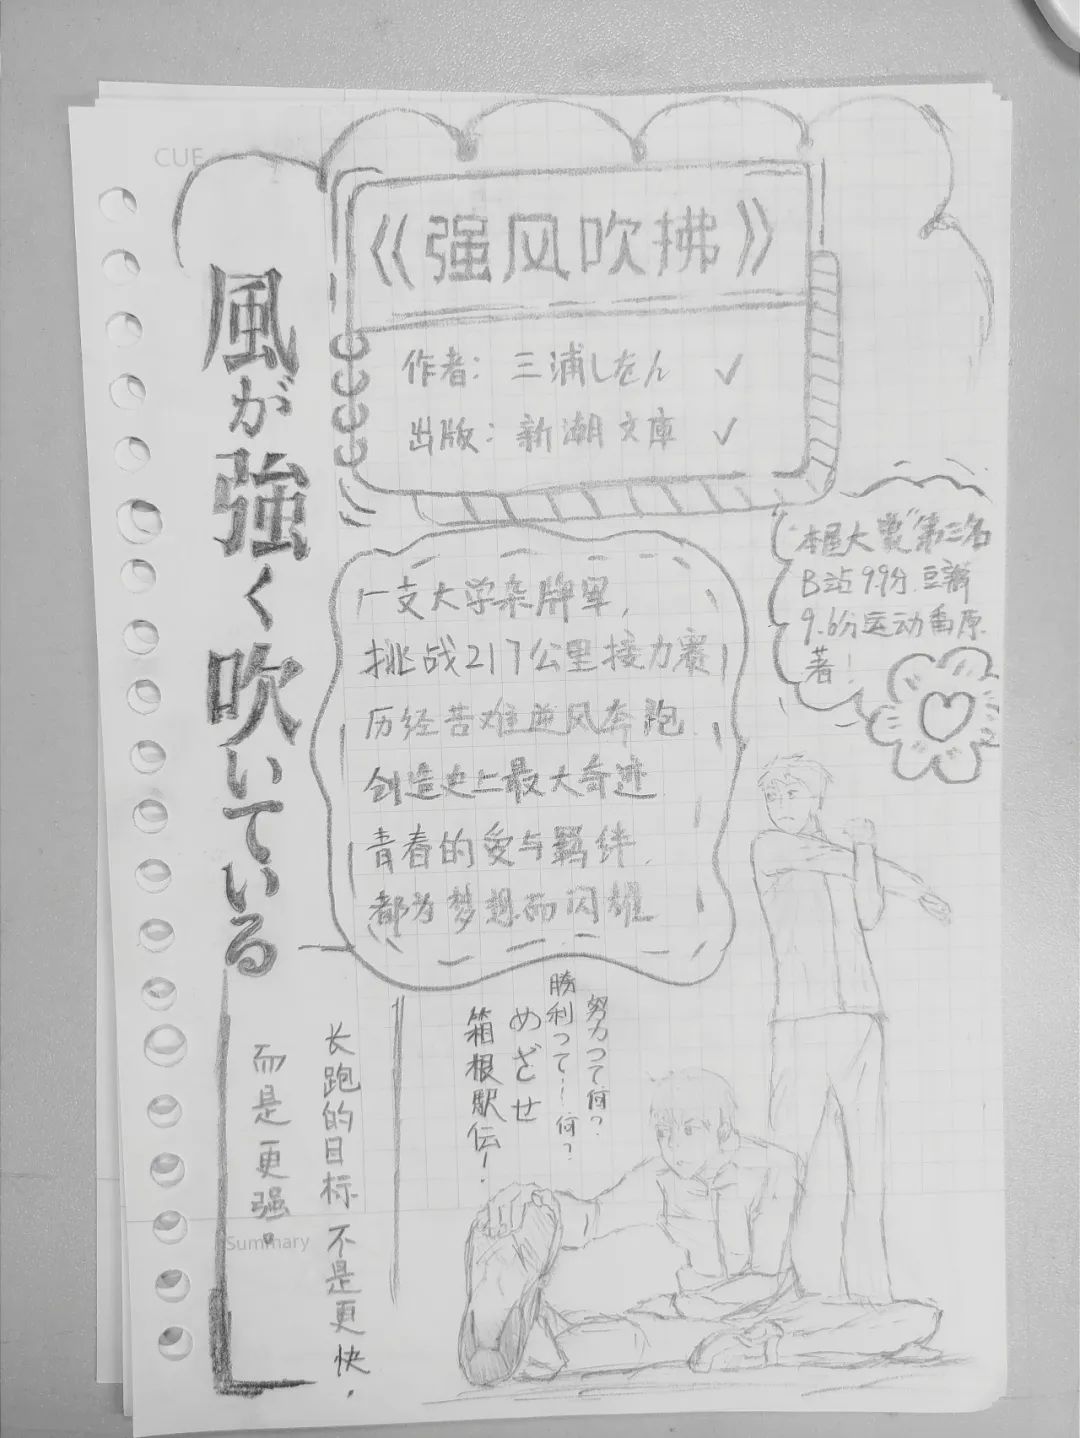 CUE
《强风吹拂》
作者：三浦しをん ✓
出版：新潮文庫 ✓
風が強く吹いている
"本屋大賞"第三名
B站9.9分.豆瓣
9.6分运动番原
著！
一支大学杂牌军，
挑战217公里接力赛
历经苦难逆风奔跑
创造史上最大奇迹
青春的爱与羁绊，
都为梦想而闪耀
努力って何？
勝利って…！何？
めざせ
箱根駅伝！
长跑的目标不是更快，
而是更强。
Summary